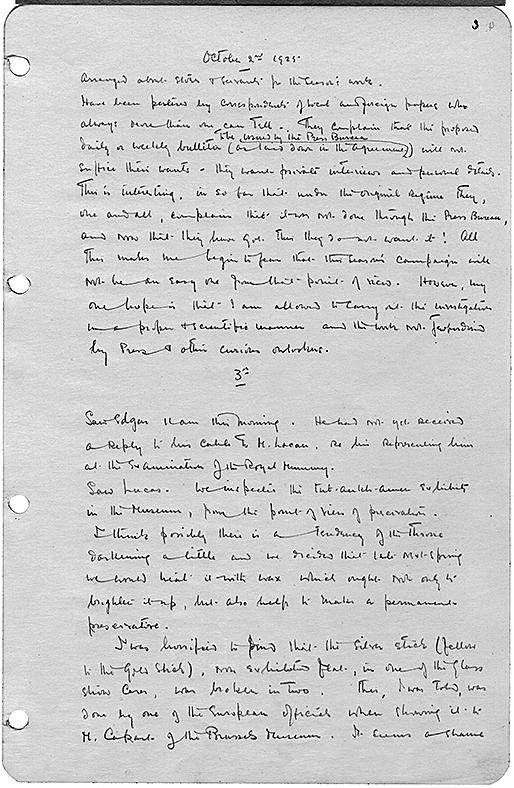 3
October 2nd 1925
Arranged about stores & servants for the season's work.
Have been pestered by correspondents of local and foreign papers who
always more than one can tell. They complain that the proposed
daily or weekly bulletin (as laid down in the agreement) will not
to be issued by the Press Bureau
suffice their wants - they want private interviews and personal details.
This is interesting, in so far that under the original regime they,
one and all, complain that it was not done through the Press Bureau,
and now that they have got this they do not want it! All
this makes me begin to fear that this season's campaign will
not be an easy one from that point of view. However, my
one hope is that I am allowed to carry out the investigation
in a proper & scientific manner and the work not jeopardised
by Press & other curious onlookers.
3rd
Saw Edgar 11 am this morning. He had not yet received
a reply to his cable to M. Lacau, re his representing him
at the examination of the Royal Mummy.
Saw Lucas. We inspected the Tut-ankh-amen exhibits
in the Museum, from the point of view of preservation.
I think possibly there is a tendency of the throne
darkening a little and we decided that late next spring
we would treat it with wax which ought not only to
brighten it up, but also help to make a permanent
preservative.
I was horrified to find that the silver stick (fellow
to the Gold Stick), now exhibited flat, in one of the glass
show cases, was broken in two. This, I was told, was
done by one of the European officials when showing it to
M. Capart of the Brussels Museum. It seems a shame